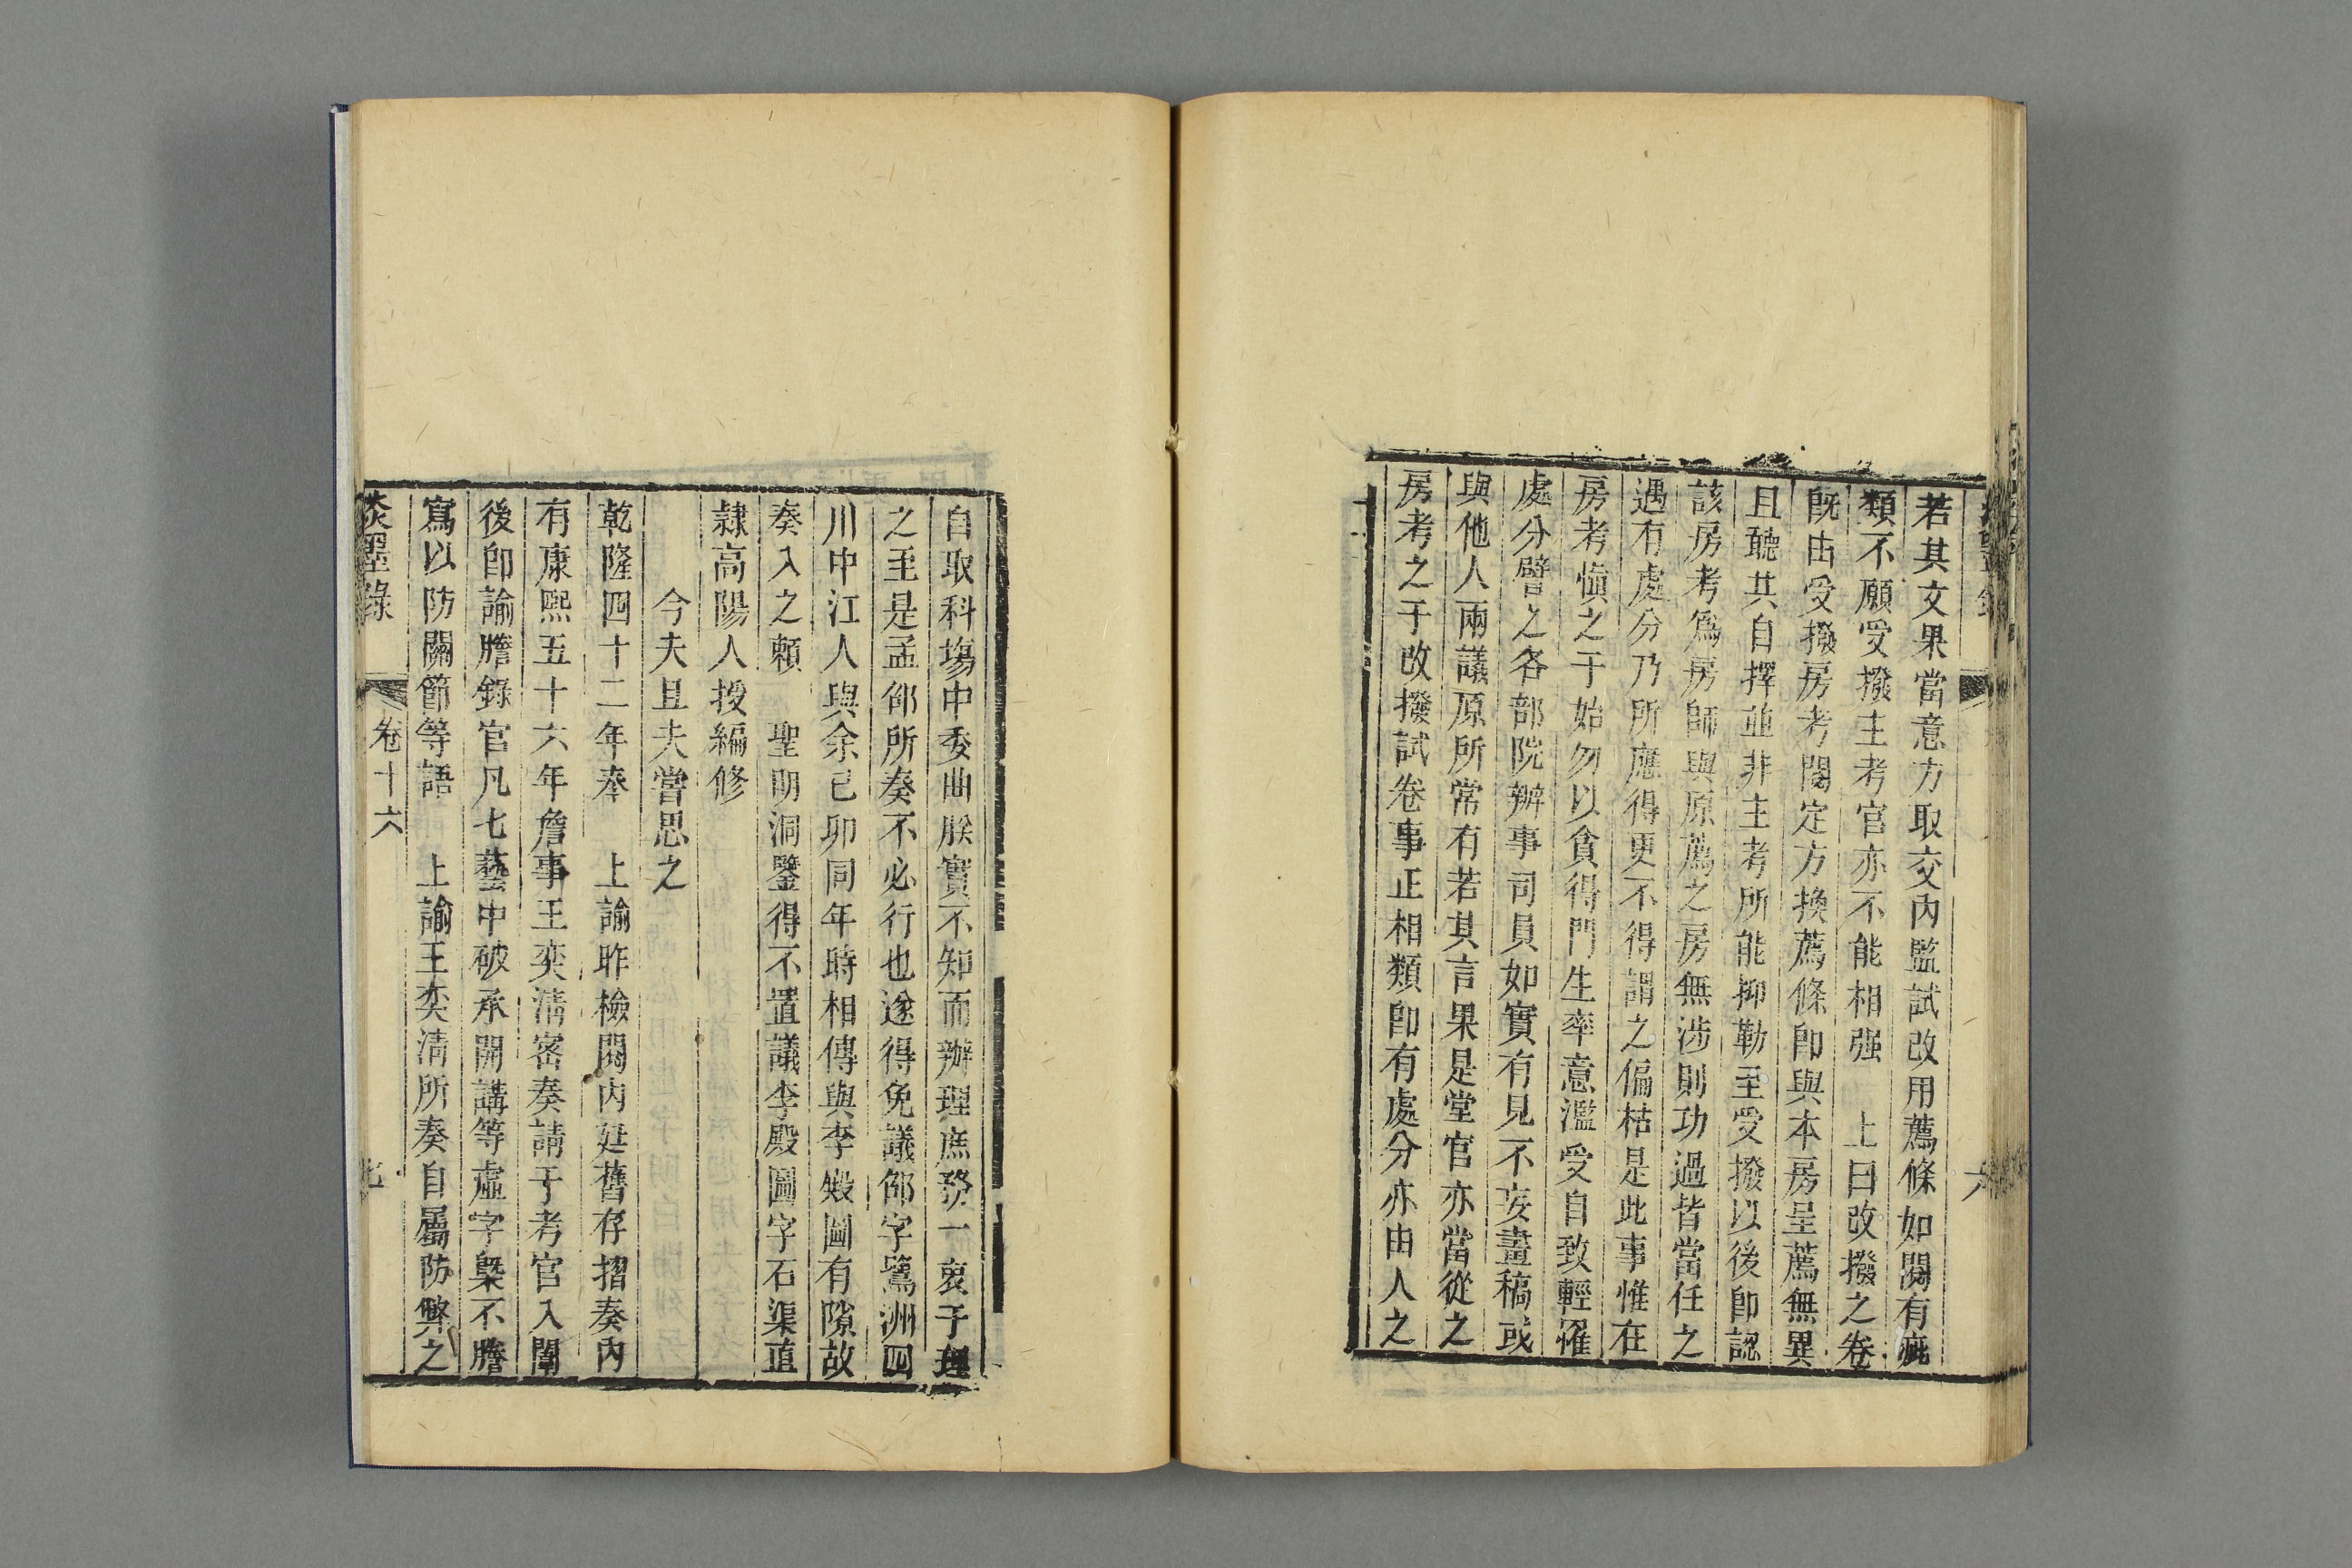 若其文果當意方取交內監試改用薦條如閱有疵
類不願受撥主考官亦不能相强　上曰改撥之卷
旣由受撥房考閱定方換薦條卽與本房呈薦無異
且聽其自擇並非主考所能抑勒至受撥以後卽認
該房考爲房師與原薦之房無涉則功過皆當任之
遇有處分乃所應得更不得謂之偏枯是此事惟在
房考愼之于始勿以貪得門生率意濫受自致輕罹
處分譬之各部院辦事司員如實有見不妄畫稿或
與他人兩議原所常有若其言果是堂官亦當從之
房考之于改撥試卷事正相類卽有處分亦由人之
自取科塲中委曲朕實不知而辦理庶務一衷于理
之至是孟邵所奏不必行也遂得免議邵字鷺洲四
川中江人與余己卯同年時相傳與李殿圖有隙故
奏入之賴　聖明洞鑒得不置議李殿圖字石渠直
隸高陽人授編修
今夫且夫嘗思之
乾隆四十二年奉　上諭昨檢閱內廷舊存摺奏內
有康熙五十六年詹事王奕清密奏請于考官入闈
後卽諭謄錄官凡七藝中破承開講等虛字槩不謄
寫以防關節等語　上諭王奕清所奏自屬防弊之
淡墨錄　卷十六